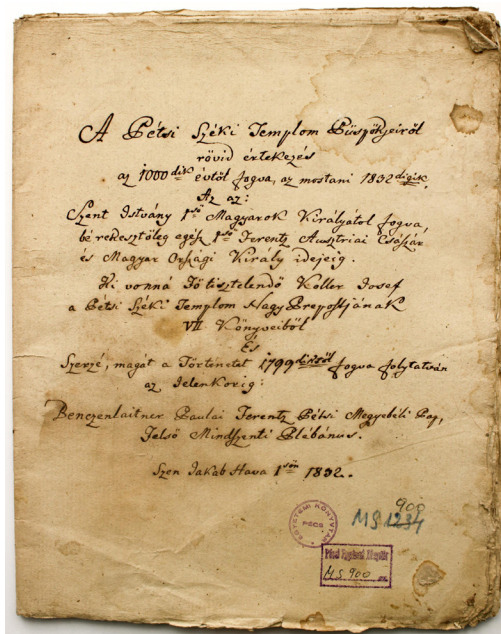 A Pétsi Széki Templom Püspökjeiről
rövid értekezés
az 1000dik évtől fogva, az mostani 1832digik.
Az az:
Szent Istvány 1ső Magyarok Királyától fogva,
bé rekesztőleg egész 1ső Ferentz Austriai Császár
és Magyar Országi Király idejéig.
Ki vonná Fő tisztelendő Koller Josef
a Pétsi Széki Templom Nagy Prepostjának
VII Könyveiből
És
Szerzé, magát a Történetet 1799dikről fogva folytatván
az Jelenkorig:
Benczenlaitner Paulai Ferentz Pétsi Megyebéli Pap,
Felső Mindszenti Plébánus.
Szen Jakab Hava 1sőn 1832.
EGYETEMI KÖNYVTÁR
PÉCS
MS 1234
900
Pécsi Egyetemi Könyvtár
MS. 900